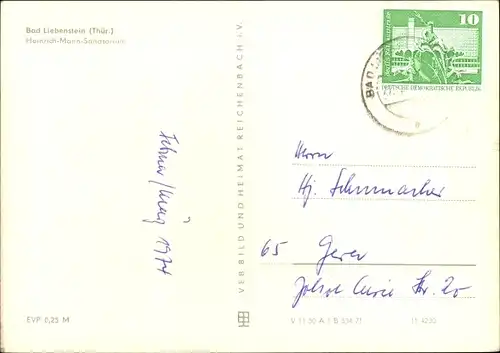 Bad Liebenstein (Thür.)
Heinrich-Mann-Sanatorium
Februar/März 1974
EVP 0,25 M
VEB BILD UND HEIMAT REICHENBACH i.V.
10
DEUTSCHE DEMOKRATISCHE REPUBLIK
BAD
Herrn
Hj. Schumacher
65 Gera
Joliot Curie Str. 20
V 11 50 A 1 B 534 71